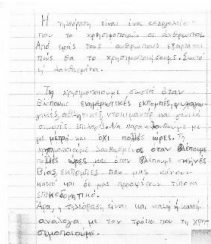 Η τηλεόραση είναι ένα εργαλείο
που το χρησιμοποιούν οι άνθρωποι.
Από εμάς τους ανθρώπους εξαρτάται
πώς θα το χρησιμοποιήσουμε. Σωστά
ή λανθασμένα.
Τη χρησιμοποιούμε σωστά όταν
βλέπουμε ενημερωτικές εκπομπές, ψυχαγω-
γικές, αθλητικές, ντοκιμαντέρ και γενικά
με μέτρο και όχι πολλές ώρες. Τη
χρησιμοποιούμε λανθασμένα όταν βλέπουμε
πολλές ώρες και όταν βλέπουμε σκηνές
βίας, εκπομπές που μας κάνουν
κακό και δε μας προσφέρουν τίποτα
Άρα, η τηλεόραση είναι και καλή ή κακή
ανάλογα με τον τρόπο που τη χρη-
σιμοποιούμε.